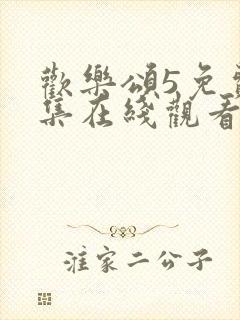 歡樂頌5免費
集在綫觀看
淮家二公子